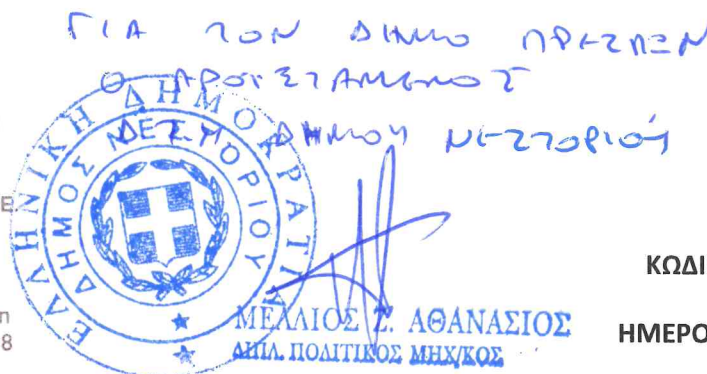 ΓΙΑ ΤΟΝ ΔΗΜΟ ΠΡΕΣΠΩΝ
Ο ΠΡΟΪΣΤΑΜΕΝΟΣ
ΔΗΜΟΥ ΝΕΣΤΟΡΙΟΥ
ΕΛΛΗΝΙΚΗ ΔΗΜΟΚΡΑΤΙΑ
ΔΗΜΟΣ ΝΕΣΤΟΡΙΟΥ
ΜΕΛΛΙΟΣ Σ. ΑΘΑΝΑΣΙΟΣ
ΔΙΠΛ. ΠΟΛΙΤΙΚΟΣ ΜΗΧ/ΚΟΣ
ΚΩΔΙ
ΗΜΕΡΟ
Ε
η
8